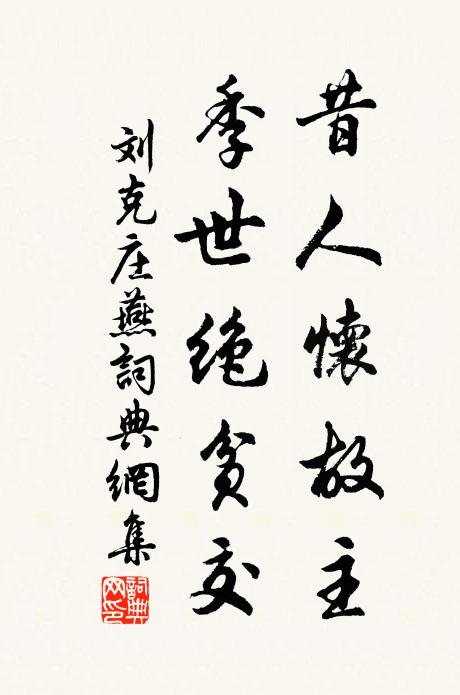 昔人懷故主
季世絕貧交
刘克庄燕詞典網集
詞典網印